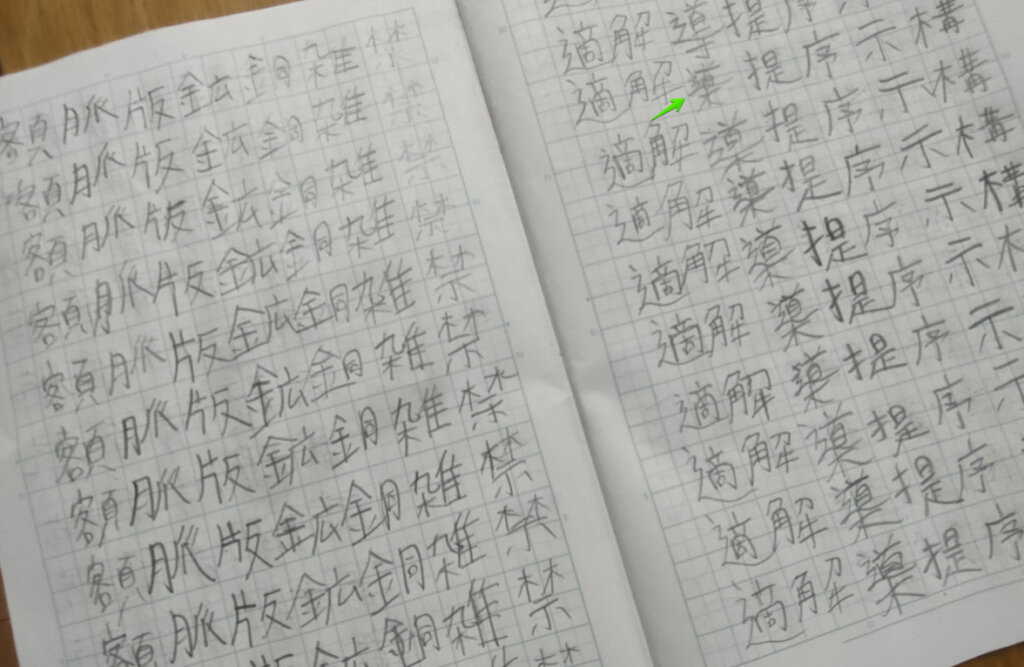 額脈版鉱銅雑禁
額脈版鉱銅雑禁
額脈版鉱銅雑禁
額脈版鉱銅雑禁
額脈版鉱銅雑禁
額脈版鉱銅雑禁
額脈版鉱銅雑禁
額脈版鉱銅雑禁
額脈版鉱銅雑禁
銅雑禁
適解導提序
適解薬提序示構
適解薬提序示構
適解薬提序示構
適解薬提序示構
適解薬提序示
適解薬提序示
適解薬提序示
適解薬提序
適解薬提序